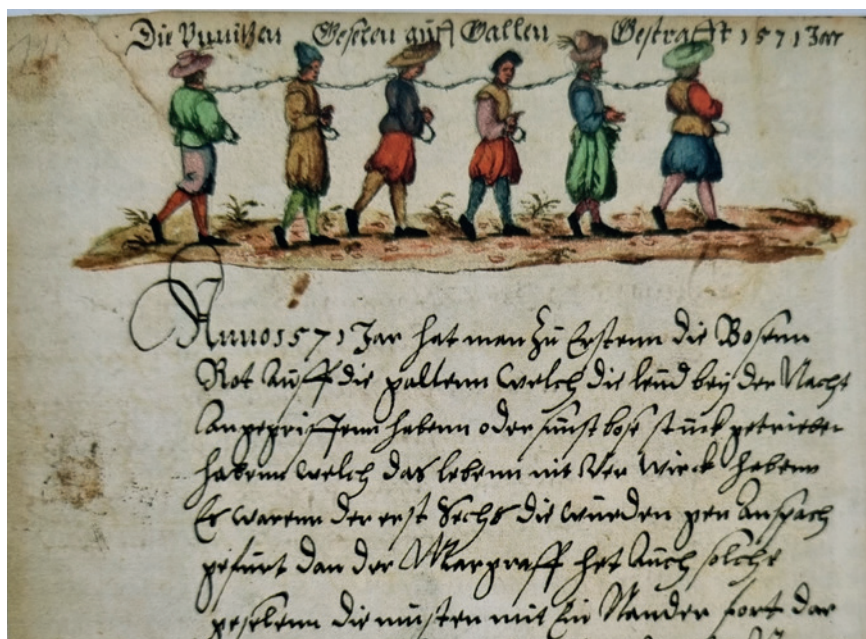 Die Vnnitzen Geselen auff Gallen Gestrafft 1571 Jar
Anno 1571 Jar hat man zu Erstenn die Bosenn
Rot Auff die gallenn welch die leud bey der Nacht
Angegriffenn habenn oder sunst bose stuck getrieben
habenn welch das lebenn nit Ver wirck habenn
Es warenn der erst Sechs die wurden gen Anspach
gefurt dan der Margraff het Auch solche
geselenn die musten mit Ein Nander fort dar